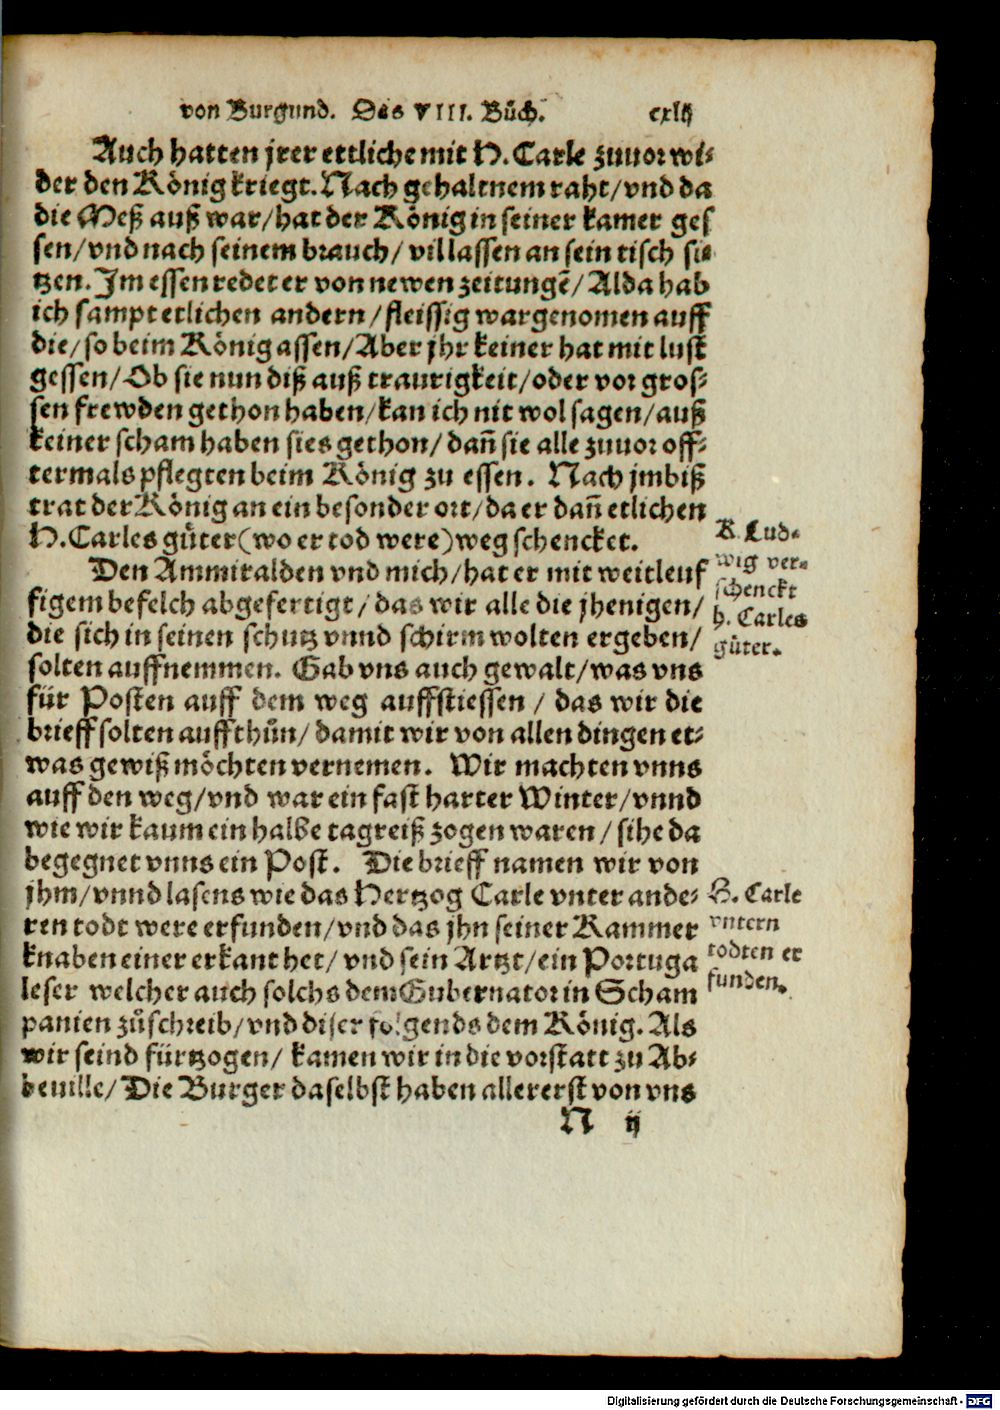 von Burgund. Das VIII. Bůch. cxlij
Auch hatten jrer ettliche mit H. Carle zuuor wi⸗
der den König kriegt. Nach gehaltnem raht/ vnd da
die Meß auß war/ hat der König in seiner kamer ges
sen/ vnd nach seinem brauch/ vil lassen an sein tisch si⸗
tzen. Im essen redet er von newen zeitungẽ/ Alda hab
ich sampt etlichen andern/ fleissig wargenomen auff
die/ so beim König assen/ Aber jhr keiner hat mit lust
gessen/ Ob sie nun diß auß traurigkeit/ oder vor gros⸗
sen frewden gethon haben/ kan ich nit wol sagen/ auß
keiner scham haben sies gethon/ dañ sie alle zuuor off⸗
termals pflegten beim König zu essen. Nach jmbiß
trat der König an ein besonder ort/ da er dañ etlichen
H. Carles gůter (wo er tod were) weg schencket.
K. Lud⸗
wig ver⸗
schenckt
h. Carles
gůter.
Den Ammiralden vnd mich/ hat er mit weitleuf
figem befelch abgefertigt/ das wir alle die jhenigen/
die sich in seinen schutz vnnd schirm wolten ergeben/
solten auffnemmen. Gab vns auch gewalt/ was vns
für Posten auff dem weg auffstiessen / das wir die
brieff solten auffthůn/ damit wir von allen dingen et⸗
was gewiß möchten vernemen. Wir machten vnns
auff den weg/ vnd war ein fast harter Winter/ vnnd
wie wir kaum ein halbe tagreiß zogen waren / sihe da
begegnet vnns ein Post. Die brieff namen wir von
jhm/ vnnd lasens wie das Hertzog Carle vnter ande⸗
ren todt were erfunden/ vnd das jhn seiner Kammer
knaben einer erkant het/ vnd sein Artzt/ ein Portuga
leser welcher auch solchs dem Gubernator in Scham
panien zůschreib/ vnd diser folgends dem König. Als
wir seind fürtzogen/ kamen wir in die vorstatt zu Ab⸗
beuille/ Die Burger daselbst haben allererst von vns
H. Carle
vntern
todten er
funden.
N ij
Digitalisierung gefördert durch die Deutsche Forschungsgemeinschaft - DFG